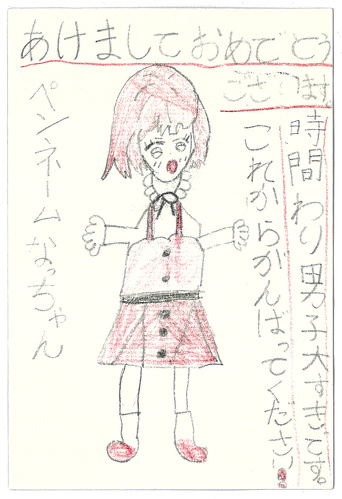 あけましておめでとう
ございます。
時間わり男子大すきです。
これからがんばってください!
ペンネームなっちゃん